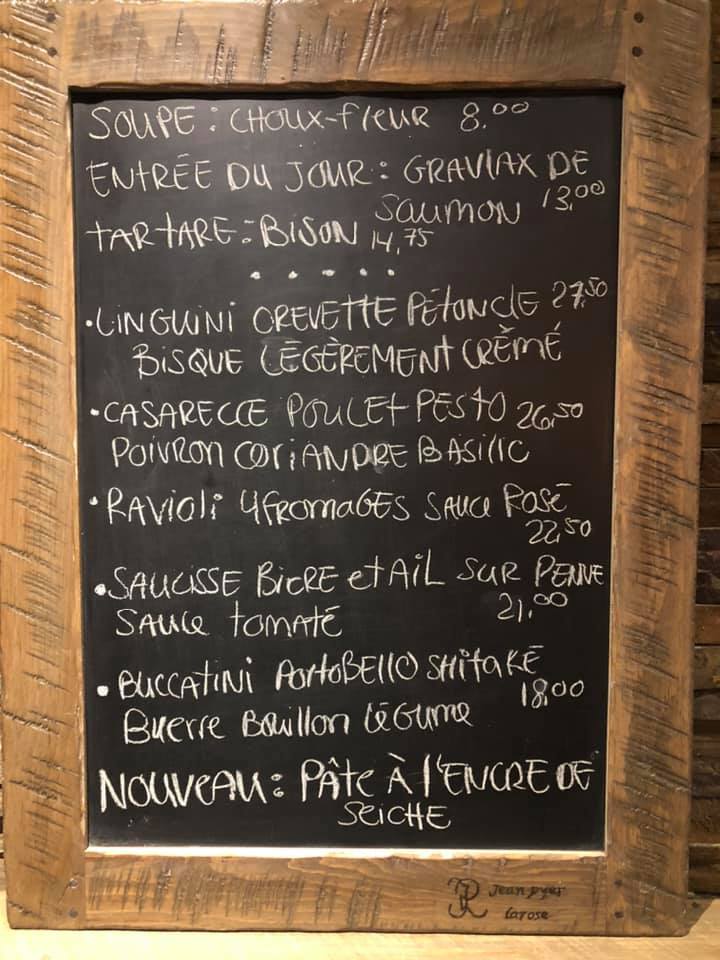 SOUPE : CHOUX-flEUR 8.00
ENTRÉE DU JOUR : GRAVLAX DE
SAUMON 13,00
TARTARE : BISON 14,75
• LINGUINI CREVETTE PÉTONCLE 27,50
BISQUE LÉGÈREMENT CRÈMÉ
• CASARECCE POULET PESTO 26,50
POIVRON CORIANDRE BASILIC
• RAVIOLI 4 FROMAGES SAUCE ROSÉ
22,50
• SAUCISSE BIERE et AIL SUR PENNE
SAUCE tomaté 21,00
• BUCCATINI PORTOBELLO SHITAKÉ
18,00
BUERRE BOUILLON LÉGUME
NOUVEAU : PÂTE À l'ENCRE DE
SEICHE
JR Jean yves
Larose